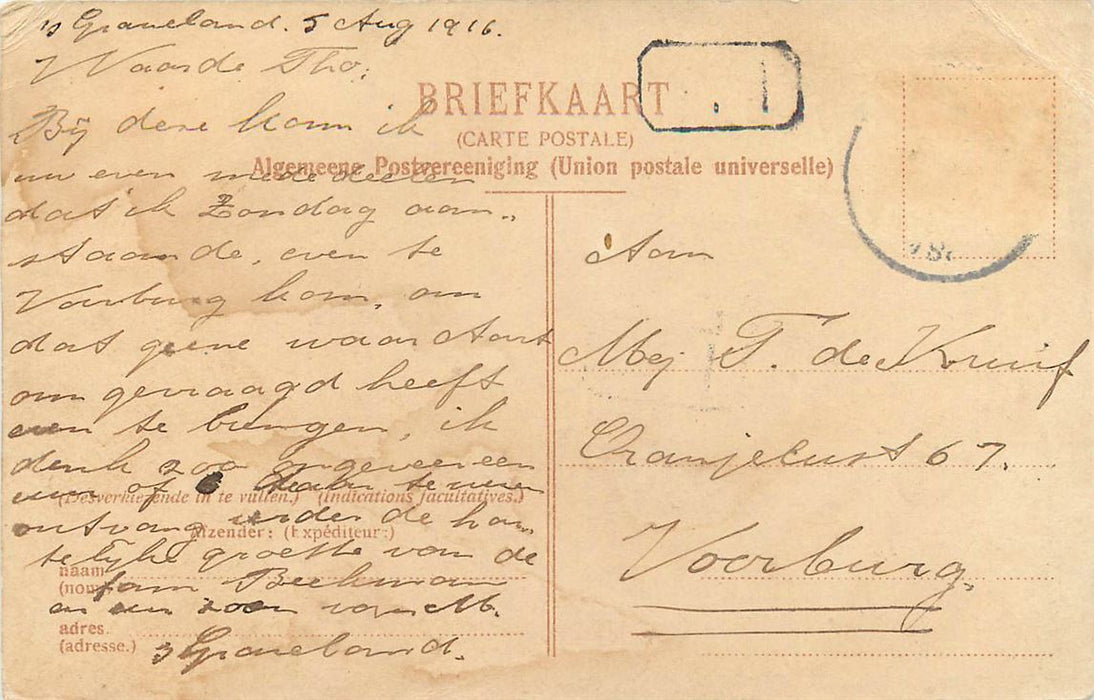 's Graveland. 5 Aug 1916.
Waarde Tho:
Bij deze kom ik
uw even mede deelen
dat ik Zondag aan„
staande, even te
Voorburg kom, om
dat geene waar Aart
om gevraagd heeft
even te brengen, ik
denk zoo ongeveer een
uur of 6 te
ontvang verder de har
telijke groette van de
fam Beekman
en een zoen van M.
's Graveland.
BRIEFKAART
(CARTE POSTALE)
Algemeene Postvereeniging (Union postale universelle)
(Desverkiezende in te vullen.) (Indications facultatives.)
Afzender: (Expéditeur:)
naam
(nom)
adres.
(adresse.)
Aan
Mej T. de Kruif
Oranjelust 67.
Voorburg.